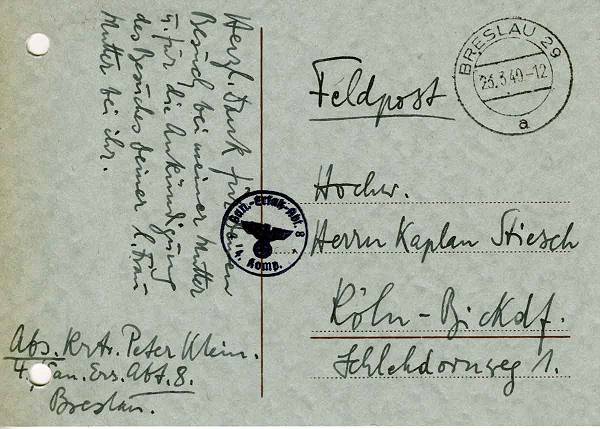 Herzl. Dank für Deinen
Besuch bei meiner Mutter
u. für die Ankündigung
des Besuches Deiner l. Frau
Mutter bei ihr.
Feldpost
BRESLAU 29
23.3.40-12
a
San.-Ersatz-Abt. 8
4. Komp.
Hochw.
Herrn Kaplan Stiesch
Köln-Bickdf.
Schlehdornweg 1.
Abs. Peter Klein.
4. San. Ers. Abt. 8.
Breslau.